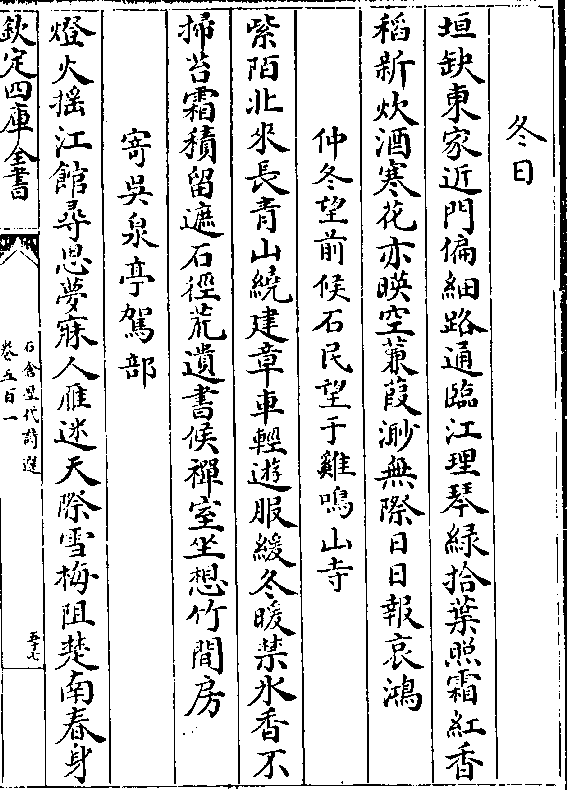 冬日
垣缺東家近門偏細路通臨江理琴緑拾葉照霜紅香
稻新炊酒寒花亦暎空蒹葭渺無際日日報哀鴻
仲冬望前候石民望于雞鳴山寺
紫陌北來長青山繞建章車輕遊服緩冬暖禁水香不
掃苔霜積留遮石徑荒遺書候禪室坐想竹間房
寄吳泉亭駕部
燈火揺江館尋思夢寐人雁迷天際雪梅阻楚南春身
欽定四庫全書
石倉歴代詩選
卷五百一
五十七